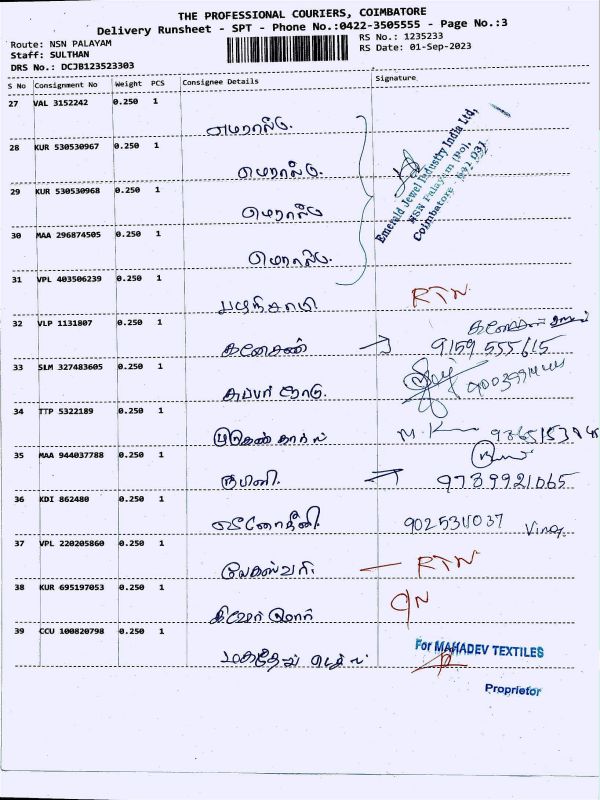 THE PROFESSIONAL COURIERS, COIMBATORE
Delivery Runsheet - SPT - Phone No.:0422-3505555 - Page No.:3
Route: NSN PALAYAM
RS No.: 1235233
Staff: SULTHAN
RS Date: 01-Sep-2023
DRS No.: DCJB123523303
S No Consignment No Weight PCS Consignee Details Signature
27 VAL 3152242 0.250 1
எமரால்டு.
28 KUR 530530967 0.250 1
எமரால்டு.
29 KUR 530530968 0.250 1
எமரால்டு
30 MAA 296874505 0.250 1
எமரால்டு.
Emerald Jewel Industry India Ltd,
NSN Palayam (Po),
Coimbatore - 641 031
31 VPL 403506239 0.250 1
பழநிசாமி RTN
32 VLP 1131807 0.250 1
கணேசன் → 9159 555615
33 SLM 327483605 0.250 1
34 TTP 5322189 0.250 1
35 MAA 944037788 0.250 1
→ 9739921065
36 KDI 862480 0.250 1
37 VPL 220205860 0.250 1
— RTN
38 KUR 695197053 0.250 1
39 CCU 100820798 0.250 1
For MAHADEV TEXTILES
Proprietor